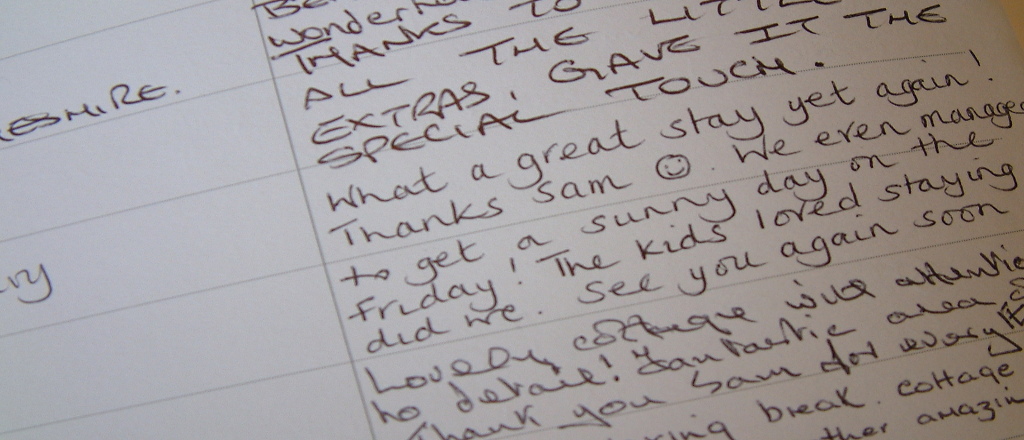 wonderful
THANKS TO
ALL THE LITTLE
EXTRAS, GAVE IT THE
SPECIAL TOUCH.
What a great stay yet again!
Thanks Sam ☺. We even manage
to get a sunny day on the
Friday! The kids loved staying
did we. See you again soon
Lovely cottage with attentio
to detail! Fantastic area
Thank you Sam for every
break. cottage
amazin